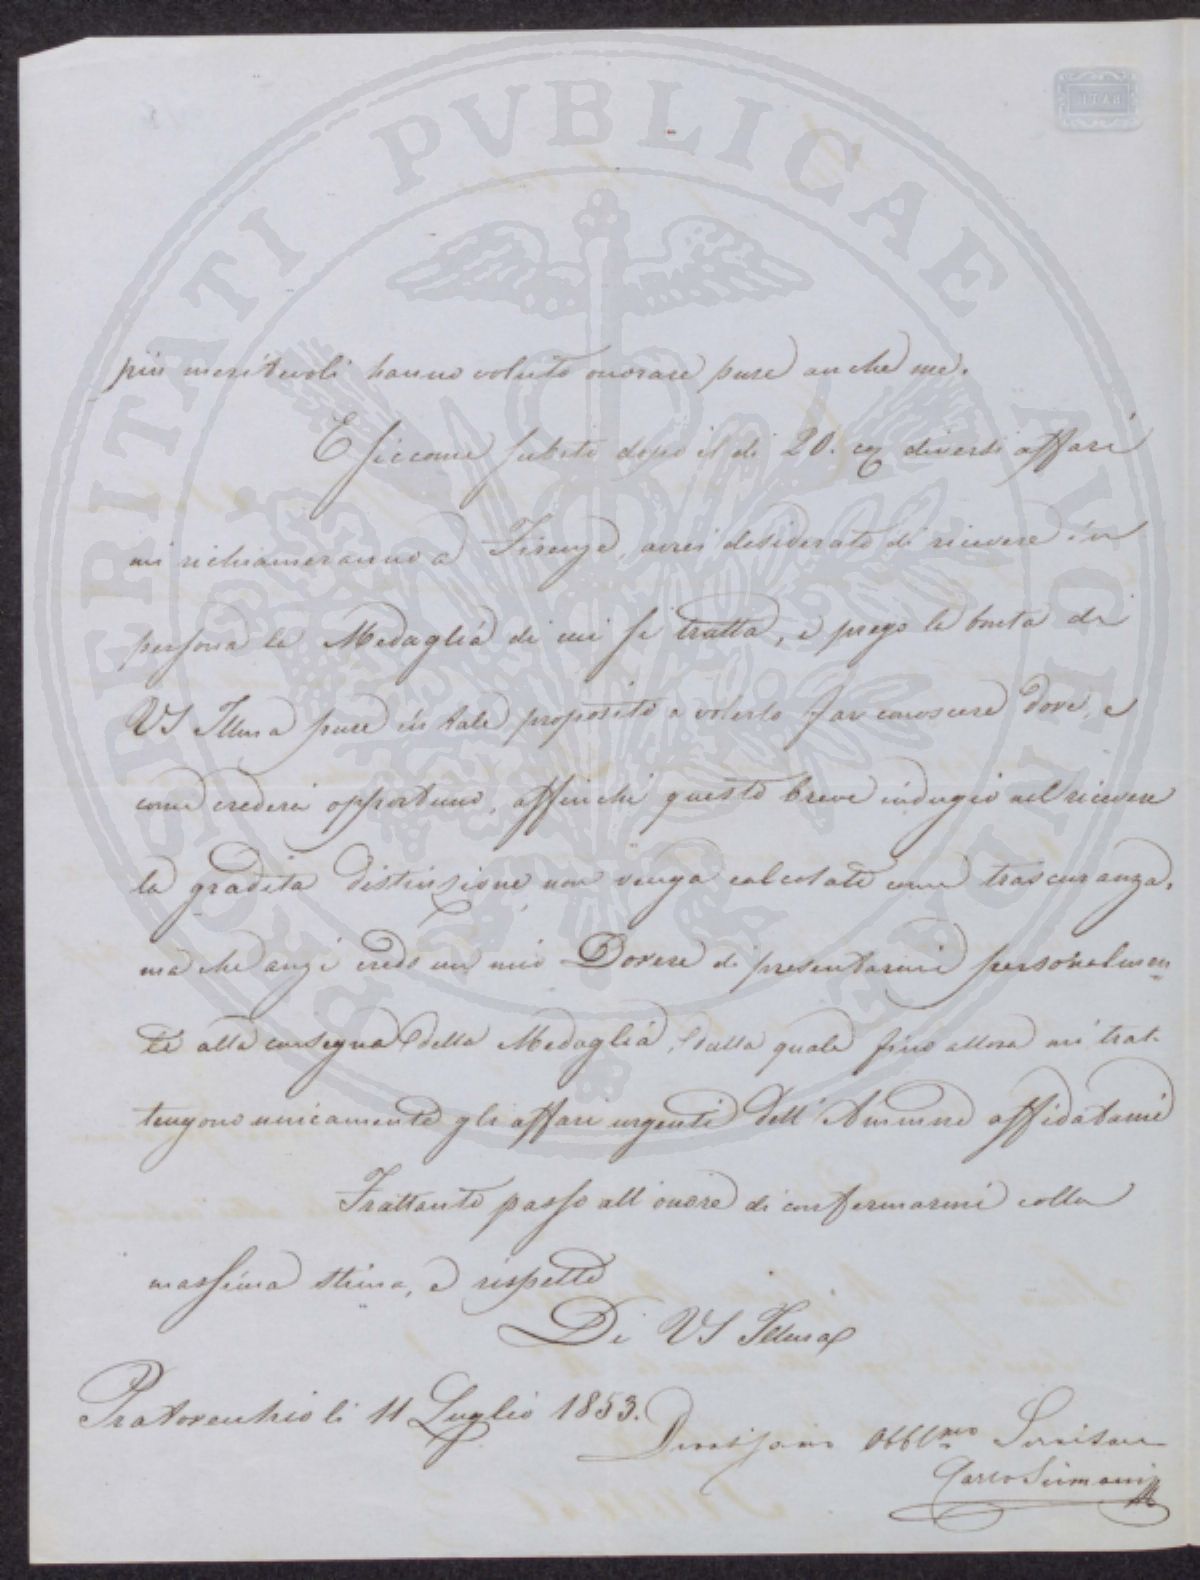 più meritevoli hanno voluto onorare pure anche me.
E siccome subito dopo il dì 20. diversi affari
mi richiameranno a Firenze, avrei desiderato di ricevere in
persona la Medaglia di cui si tratta, e prego la bontà di
VS Illma pure in tale proposito a volerlo far conoscere dove, e
come crederà opportuno, affinchè questo breve indugio nel ricevere
la gradita distinzione non venga calcolato come trascuranza,
ma che anzi credo un mio Dovere di presentarmi personalmen
te alla consegna della Medaglia, dalla quale fino allora mi trat-
tengono unicamente gli affari urgenti dell'Ammne affidatami
Frattanto passo all'onore di confermarmi colla
massima stima, e rispetto
Di VS Illma
Pratovecchio li 11 Luglio 1853.
Devotissimo Obblmo Servitore
Carlo Siemoni
PROSPERITATI PVBLICAE AVGENDAE
BATH